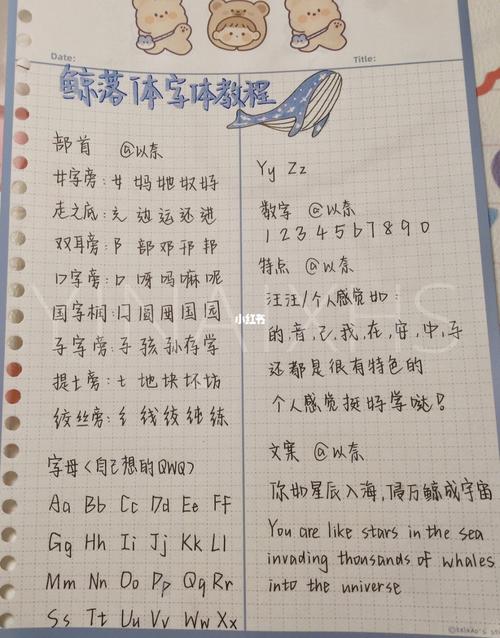 Date:
Title:
鲸落体字体教程
部首 @以奈
女字旁:女 妈 她 奴 好
走之底:辶 边 运 还 进
双耳旁:阝 部 邓 邘 邦
口字旁:口 呀 吗 嘛 呢
国字框:囗 圆 圈 国 园
子字旁:子 孩 孙 存 学
提土旁:土 地 块 坏 坊
绞丝旁:纟 线 绞 纯 练
字母<自己想的QWQ>
Aa Bb Cc Dd Ee Ff
Gg Hh Ii Jj Kk Ll
Mm Nn Oo Pp Qq Rr
Ss Tt Uu Vv Ww Xx
Yy Zz
数字 @以奈
1 2 3 4 5 6 7 8 9 0
特点 @以奈
汪汪/个人感觉如:
的,音,己,我,在,守,中,子
还都是很有特色的
个人感觉挺好学哒!
小红书
文案 @以奈
你如星辰入海,侵万鲸成宇宙
You are like stars in the sea
invading thousands of whales
into the universe